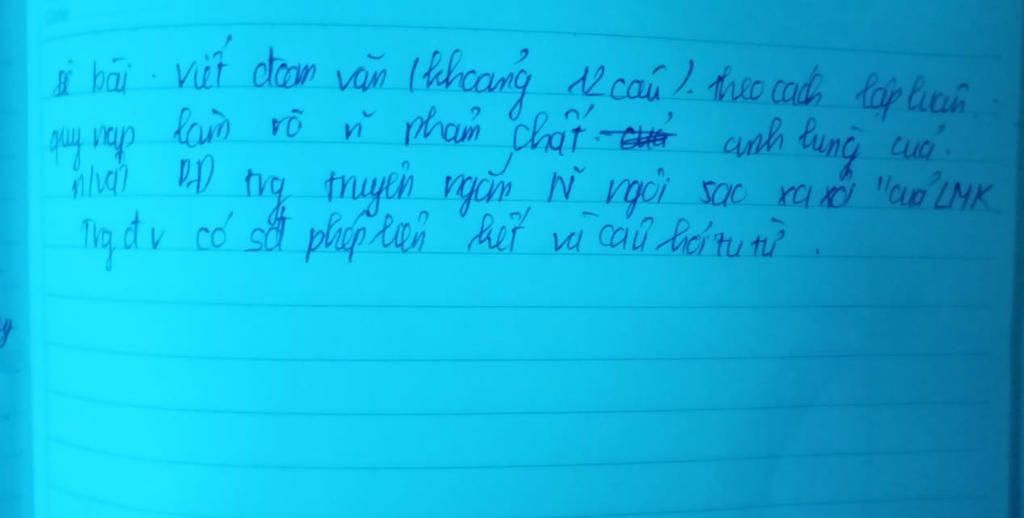 đề bài. Viết đoạn văn (khoảng 12 câu). theo cách lập luận
quy nạp làm rõ n~ phẩm chất anh hùng của.
nhân PĐ trg truyện ngắn N~ ngôi sao xa xôi" của LMK
Trg đv có sd phép liên kết và câu hỏi tu từ.